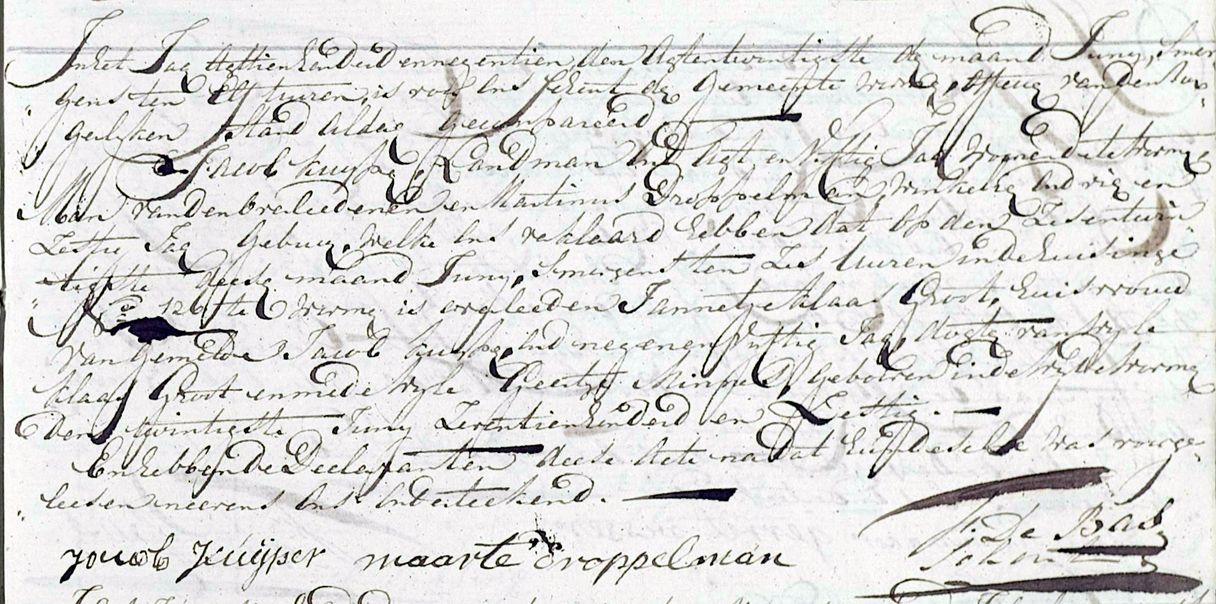 In het Jaar Agttienhonderd en negentien den Agtentwintigste der maand Juny, Smor„
„gens ten Elf uuren, is voor ons Schout der Gemeente Wervershoof van den Bur„
„gerlyken Stand Aldaar Gecompareerd.
Jacob Kuyper, Landman Oud Agt en Vyftig Jaar Woonende te Wervers
Man van den overleedenen en Martinus Droppelman, Winkelier Oud vier en
Zestig Jaar Gebuur, Welke ons verklaard hebben dat op den Zesentwin„
„tigste deeser maand Juny, Smorgens ten Zes Uuren, in de Huisinge
No. 126 te Wervers is overleeden Jannetje Klaas Groot, Huisvrouw
van Gemelde Jacob Kuyper, Oud negen en Vyftig Jaar, Dogter van Wyle
Klaas Groot en mede Wyle Geertje, Gebooren in de Wervers
den twintigste Juny Zeventienhonderd en Zestig.
En hebben de Declaranten deese Acte na dat hun deselve was voorge„
„leesen neevens ons onderteekend.
J. De Bak
Schout
jacob Kuijper maarte droppelman